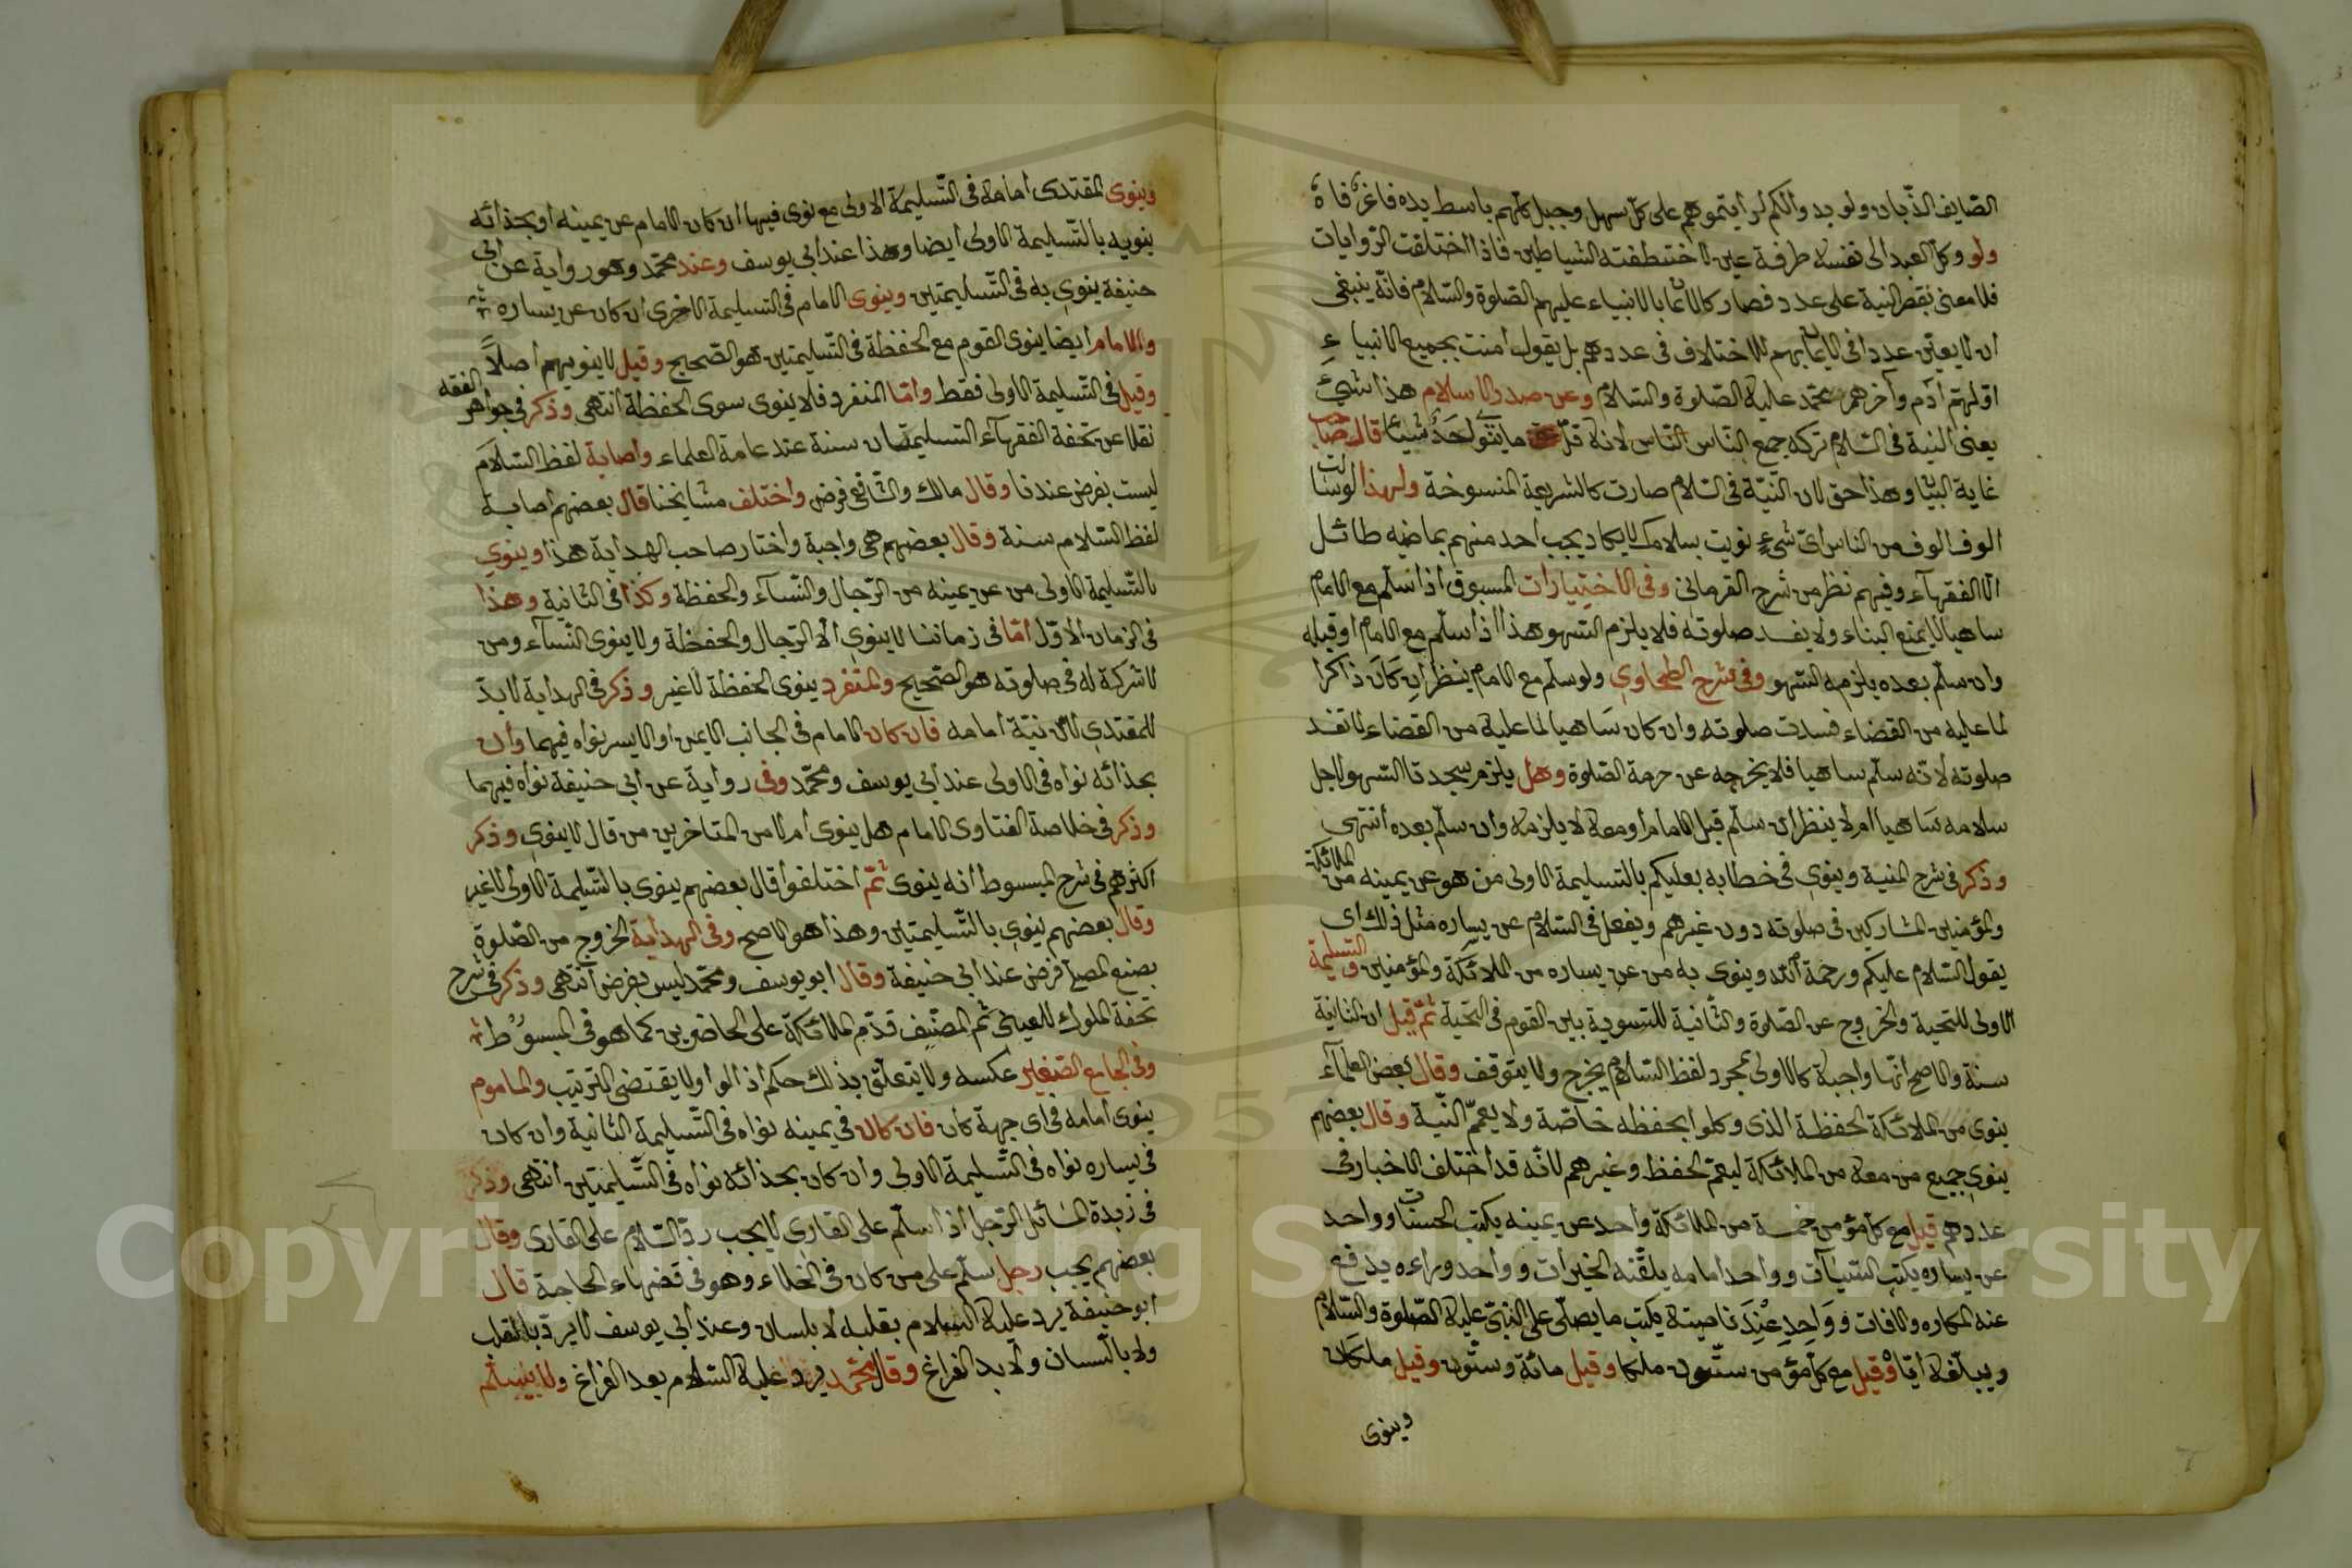 الصايف الذّبان ولو بد والكم لرأيتموهم على كلّ سهل وجبل كلّهم باسط يده فاغر فاه
ولو وكل العبد الى نفسه طرفة عين لاختطفته الشياطين فاذا اختلفت الروايات
فلا معنى لنية على عدد فصار كالايمان بالانبياء عليهم الصلوة والسّلام فانّه ينبغى
ان لا يعيّن عددا فى الايمان بهم للاختلاف فى عددهم بل يقول امنت بجميع الانبياء
اوّلهم آدم وآخرهم محمّد عليه الصّلوة والسّلام وعن صدر الاسلام هذا شئ
يعنى النية فى السّلام تركه جميع النّاس لانه قلّ ما ينوى احد شيئا قال صاحب
غاية البيان وهذا حق لان النيّة فى السّلام صارت كالشريعة المنسوخة ولهذا لو سالت
الوف الوف من الناس اىّ شئ نويت بسلامك لا يكاد يجيب احد منهم بما فيه طائل
الّا الفقهآء وفيهم نظر من شرح القرمانى وفى الاختيارات المسبوق اذا سلّم مع الامام
ساهيا لا يمنع البناء ولا يفسد صلوته فلا يلزم السّهو هذا اذا سلّم مع الامام او قبله
وان سلّم بعده يلزمه السّهو وفى شرح الطحاوي ولو سلّم مع الامام ينظر ان كان ذاكرا
لما عليه من القضاء فسدت صلوته وان كان ساهيا لما عليه من القضاء لا تفسد
صلوته لانّه سلّم ساهيا فلا يخرجه عن حرمة الصّلوة وهل يلزم سجدتا السّهو لاجل
سلامه ساهيا ام لا ينظر ان سلّم قبل الامام او معه لا يلزمه وان سلّم بعده انتهى
وذكر فى شرح المنية وينوي فى خطابه بعليكم بالتّسليمة الاولى من هو عن يمينه من الملائكة
والمؤمنين المشاركين فى صلوته دون غيرهم ويفعل فى السّلام عن يساره مثل ذلك اى
يقول السّلام عليكم ورحمة الله وينوى به من عن يساره من الملائكة والمؤمنين والتسليمة
الاولى للتحية والخروج عن الصّلوة والثّانية للتسوية بين القوم فى التحية ثمّ قيل ان الثانية
سنة والاصح انّها واجبة كالاولى بمجرد لفظ السّلام يخرج ولا يتوقف وقال بعض العلمآء
ينوى من الملائكة الحفظة الذى وكلوا بحفظه خاصّة ولا يعمّ النّية وقال بعضهم
ينوي جميع من معه من الملائكة ليعمّ الحفظ وغيرهم لانّه قد اختلف الاخبار فى
عددهم قيل مع كل مؤمن خمسة من الملائكة واحد عن يمينه يكتب الحسنات وواحد
عن يساره يكتب السّيئات وواحد امامه يلقّنه الخيرات وواحد وراءه يدفع
عنه المكاره والافات وواحد عند ناصيته يكتب ما يصلّى على النبىّ عليه الصّلوة والسّلام
ويبلّغه ايّاه وقيل مع كلّ مؤمن ستّون ملكا وقيل مائة وستّون وقيل ملكان
وينوى
وينوى المقتدى امامه فى التّسليمة الاولى مع نوى فيها ان كان الامام عن يمينه او بحذائه
ينويه بالتّسليمة الاولى ايضا وهذا عند ابى يوسف وعند محمّد وهو رواية عن ابى
حنيفة ينوي به فى التّسليمتين وينوى الامام فى التّسليمة الاخرى ان كان عن يساره
والامام ايضا ينوى القوم مع الحفظة فى التّسليمتين هو الصّحيح وقيل لا ينويهم اصلاً
وقيل فى التّسليمة الاولى فقط وامّا المنفرد فلا ينوى سوى الحفظة انتهى وذكر فى جواهر الفقه
نقلا عن تحفة الفقهآء التسليمتان سنة عند عامة العلماء واصابة لفظ السّلام
ليست بفرض عندنا وقال مالك والشّافعى فرض واختلف مشايخنا قال بعضهم اصابة
لفظ السّلام سنة وقال بعضهم هى واجبة واختار صاحب الهداية هذا وينوي
بالتّسليمة الاولى من عن يمينه من الرّجال والنّسآء والحفظة وكذا فى الثّانية وهذا
فى الزمان الاوّل امّا فى زماننا لا ينوي الّا الرّجال والحفظة ولا ينوى النّسآء ومن
لا شركة له فى صلوته هو الصّحيح والمنفرد ينوى الحفظة لا غير وذكر فى الهداية لا بدّ
للمقتدي من نيّة امامه فان كان الامام فى الجانب الايمن او الايسر نواه فيهما وان
بحذائه نواه فى الاولى عند ابى يوسف ومحمّد وفى رواية عن ابى حنيفة نواه فيهما
وذكر فى خلاصة الفتاوى الامام هل ينوى ام لا من المتاخرين من قال لا ينوي وذكر
اكثرهم فى شرح المبسوط انه ينوى ثمّ اختلفوا قال بعضهم ينوى بالتّسليمة الاولى لا غير
وقال بعضهم ينوي بالتّسليمتين وهذا هو الاصح وفى الهداية الخروج من الصّلوة
بصنع المصلّى فرض عند ابى حنيفة وقال ابو يوسف ومحمّد ليس بفرض انتهى وذكر فى شرح
تحفة الملوك للعينى ثم المصنّف قدّم الملائكة على الحاضرين كما هو فى المبسوط
وفى الجامع الصّغير عكسه ولا يتعلّق بذلك حكم اذ الواو لا يقتضى الترتيب والماموم
ينوى امامه فى اى جهة كان فان كان فى يمينه نواه فى التّسليمة الثانية وان كان
فى يساره نواه فى التّسليمة الاولى وان كان بحذائه نواه فى التّسليمتين انتهى وذكر
فى زبدة المسائل الرّجل اذا سلّم على القارى لا يجب ردّ السّلام على القارى وقال
بعضهم يجب رجل سلّم على من كان فى الخلاء وهو فى قضاء الحاجة قال
ابو حنيفة يرد عليه السلام بقلبه لا بلسان وعند ابى يوسف لا يردّ بالقلب
ولا باللّسان ولا بد الفراغ وقال محمّد يرد عليه السّلام بعد الفراغ ولا
Copyright © King Saud University
1957